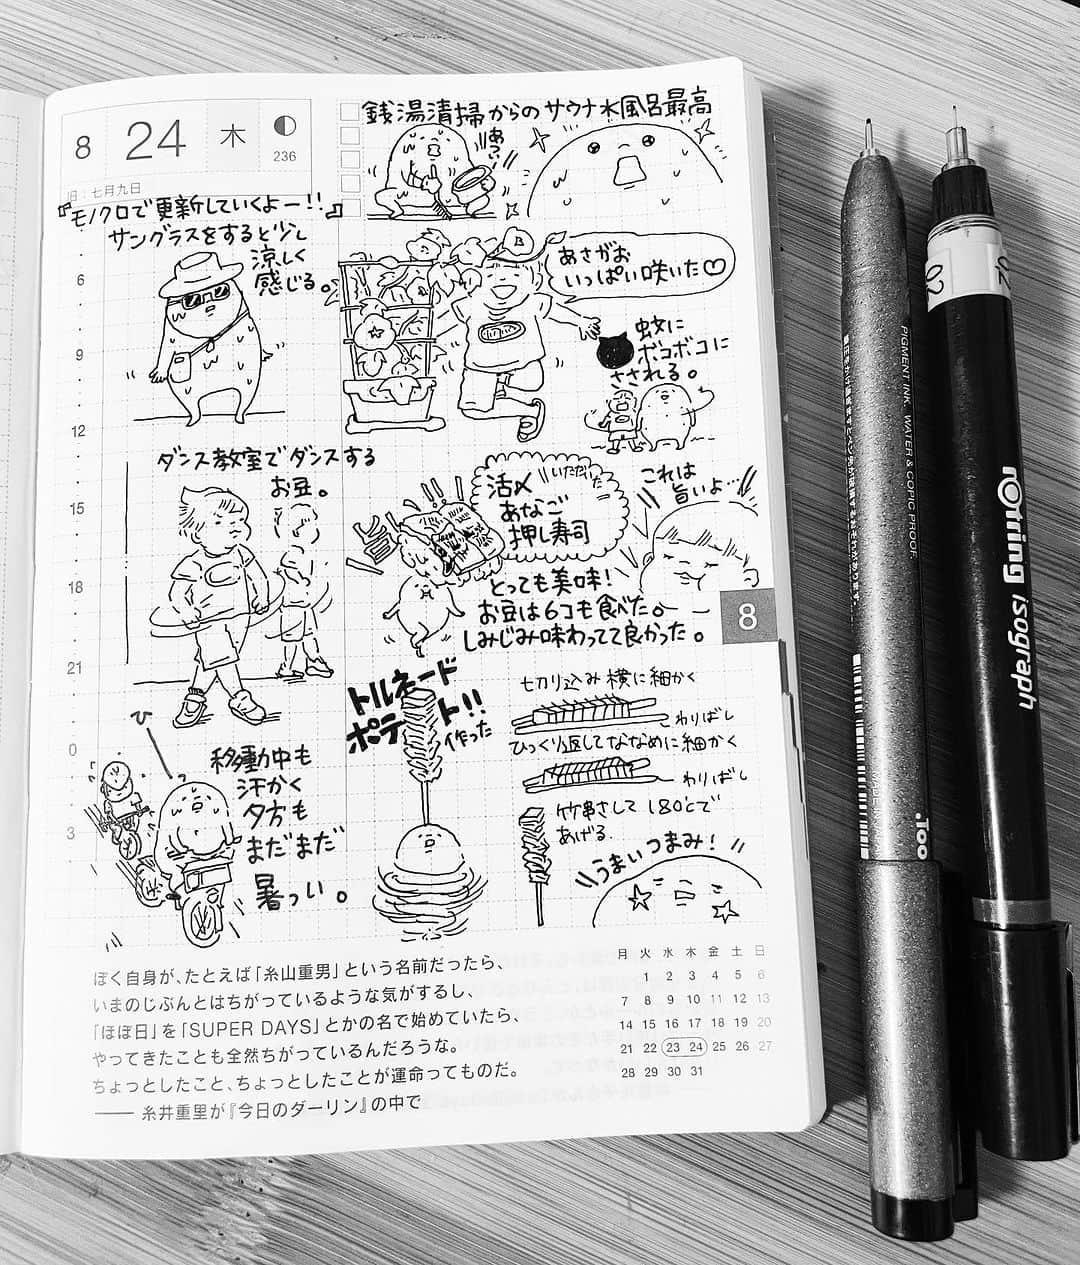 8 24 木
236
旧:七月九日
『モノクロで更新していくよー!!』
サングラスをすると少し
涼しく
感じる。
銭湯清掃からのサウナ水風呂最高
あつい
あさがお
いっぱい咲いた♡
蚊に
ボコボコに
さされる。
6
9
12
15
18
21
0
3
ダンス教室でダンスする
お豆。
いただいた
活〆
あなご
押し寿司
旨
これは
旨いよ…
とっても美味!
お豆は6コも食べた。
しみじみ味わってて良かった。
8
トルネード
ポテト!!
作った
切り込み横に細かく
わりばし
ひっくり返してななめに細かく
わりばし
竹串さして180℃で
あげる.
うまいつまみ!
移動中も
汗かく
夕方も
まだまだ
暑っい。
ぼく自身が、たとえば「糸山重男」という名前だったら、
いまのじぶんとはちがっているような気がするし、
「ほぼ日」を「SUPER DAYS」とかの名で始めていたら、
やってきたことも全然ちがっているんだろうな。
ちょっとしたこと、ちょっとしたことが運命ってものだ。
—— 糸井重里が『今日のダーリン』の中で
月 火 水 木 金 土 日
1 2 3 4 5 6
7 8 9 10 11 12 13
14 15 16 17 18 19 20
21 22 23 24 25 26 27
28 29 30 31
PIGMENT INK, WATER & COPIC PROOF.
.Too
0.2
rotring isograph